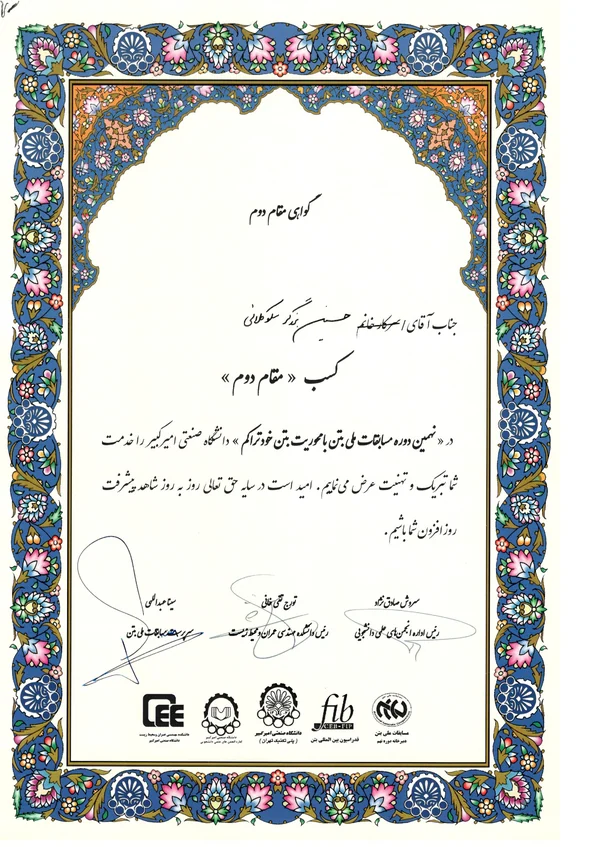 گواهی مقام دوم
جناب آقای / سرکار خانم حسین بزرگر
کسب « مقام دوم »
در « نهمین دوره مسابقات ملی بتن با محوریت بتن خودتراکم » دانشگاه صنعتی امیرکبیر را خدمت
شما تبریک و تهنیت عرض می‌نماییم. امید است در سایه حق تعالی روز به روز شاهد پیشرفت
روز افزون شما باشیم.
سروش صادق نژاد
رئیس اداره انجمن‌های علمی دانشجویی
تورج تقی خانی
رئیس دانشکده مهندسی عمران و محیط زیست
سینا عبدالهی
سرپرست مسابقات ملی بتن
مسابقات ملی بتن
دبیرخانه دوره نهم
fib
CEB-FIP
فدراسیون بین المللی بتن
دانشگاه صنعتی امیرکبیر
( پلی تکنیک تهران )
دانشگاه صنعتی امیرکبیر
CEE
دانشکده مهندسی عمران و محیط زیست
دانشگاه صنعتی امیرکبیر